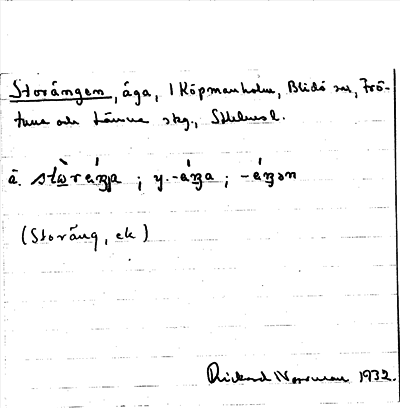 Storängen, äga, 1 Köpmanholm, Blidö sn, Frö-
tuna och Länna skg., Sthlms l.
ä. stẁ̲ráŋa ; y. -áŋa ; -áŋən
(Storäng, ek)
Rickard Norrman 1932.